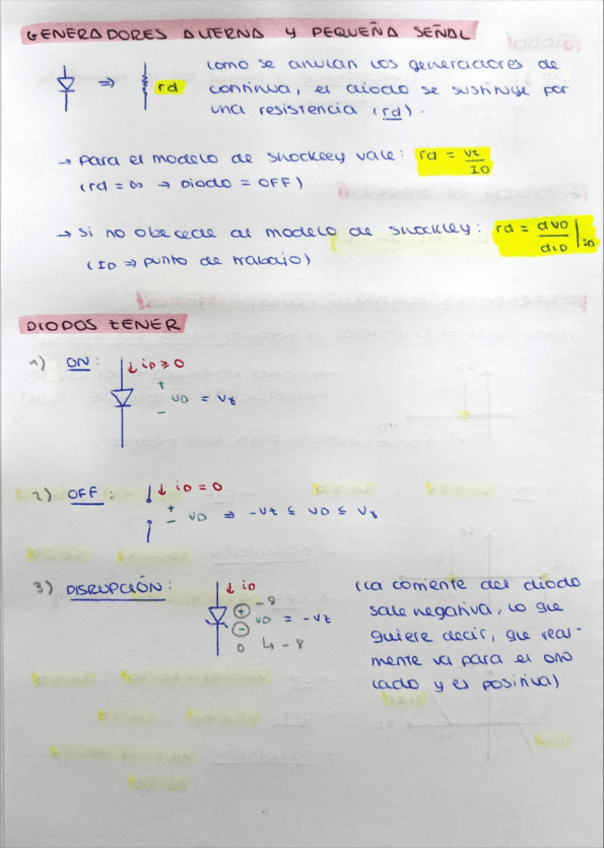 GENERADORES ALTERNA Y PEQUEÑA SEÑAL
⇒ rd
Como se anulan los generadores de
continua, el diodo se sustituye por
una resistencia (rd).
→ Para el modelo de Shockley vale: rd = Vt/ID
(rd = ∞ → Diodo = OFF)
→ Si no obecede al modelo de Shockley: rd = dVD/diD |ID
(ID ⇒ punto de trabajo)
DIODOS ZENER
1) ON: ↓ iD ≥ 0
+
VD = Vγ
-
2) OFF: ↓ iD = 0
+
- VD ⇒ -Vz ≤ VD ≤ Vγ
3) DISRUPCIÓN: ↓ iD
+ -8
VD = -Vz
-
0 ↳ -8
(La corriente del diodo
sale negativa, lo que
quiere decir, que real-
mente va para el otro
lado y es positiva)